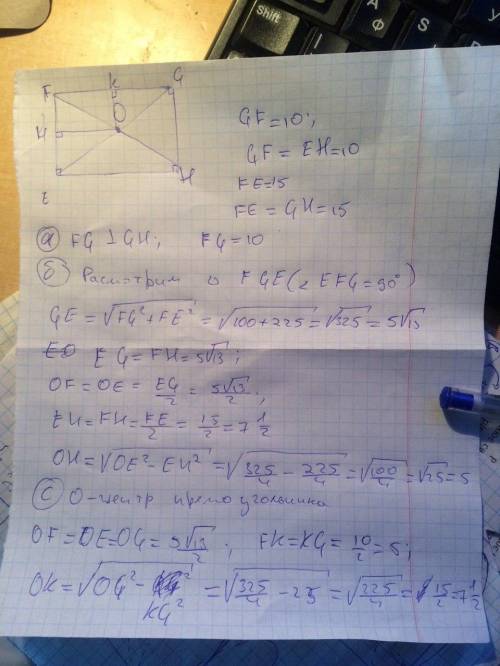 F K G
O
H
E H
GF=10;
GF = EH=10
FE=15
FE = GH=15
а) FG ⊥ GH; FG=10
б) Расмотрим △ FGE (∠ EFG = 90°)
GE = √FG²+FE² = √100+225 = √325 = 5√13
EG = FH = 5√13;
OF = OE = EG/2 = 5√13/2;
EH = FH = FE/2 = 15/2 = 7 1/2
OH = √OE² - EH² = √325/4 - 225/4 = √100/4 = √25 = 5
с) О-центр прямоугольника
OF = OE = OG = 5√13/2; FK = KG = 10/2 = 5;
OK = √OG² - KG² = √325/4 - 25 = √225/4 = 15/2 = 7 1/2
Shift